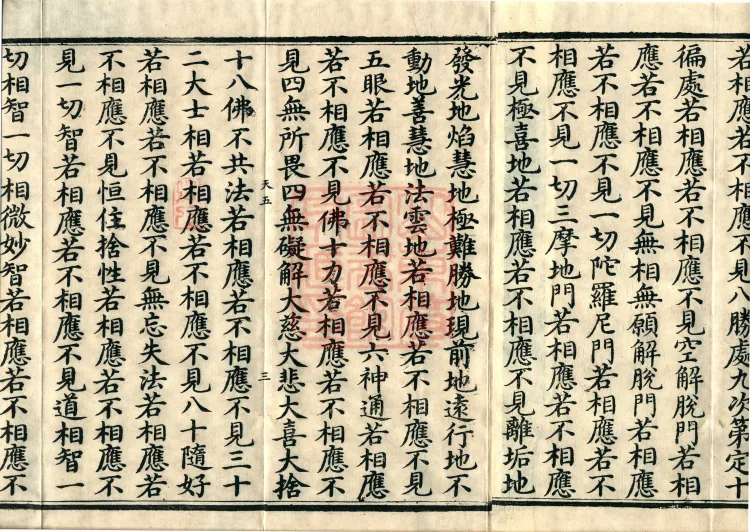 若相應若不相應不見八勝處九次第定十
徧處若相應若不相應不見空解脫門若相
應若不相應不見無相無願解脫門若相應
若不相應不見一切陀羅尼門若相應若不
相應不見一切三摩地門若相應若不相應
不見極喜地若相應若不相應不見離垢地
發光地焰慧地極難勝地現前地遠行地不
動地善慧地法雲地若相應若不相應不見
五眼若相應若不相應不見六神通若相應
若不相應不見佛十力若相應若不相應不
見四無所畏四無礙解大慈大悲大喜大捨
天五
三
十八佛不共法若相應若不相應不見三十
二大士相若相應若不相應不見八十隨好
若相應若不相應不見無忘失法若相應若
不相應不見恒住捨性若相應若不相應不
見一切智若相應若不相應不見道相智一
切相智一切相微妙智若相應若不相應不